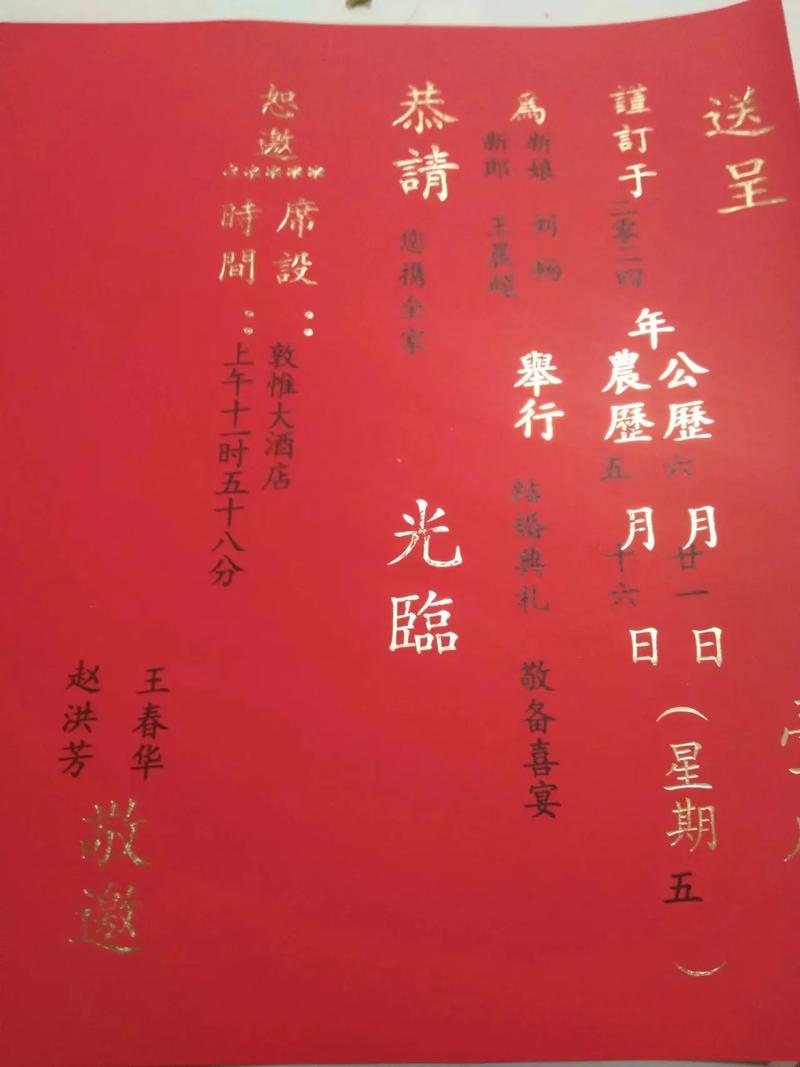 送呈
謹訂于二零二四年公歷六月廿一日（星期五）
農歷五月十六日
為新娘 刘畅
新郎 王晨超
舉行结婚典礼 敬备喜宴
恭請您携全家光臨
恕邀
席設：敦惟大酒店
時間：上午十一时五十八分
王春华
赵洪芳
敬邀